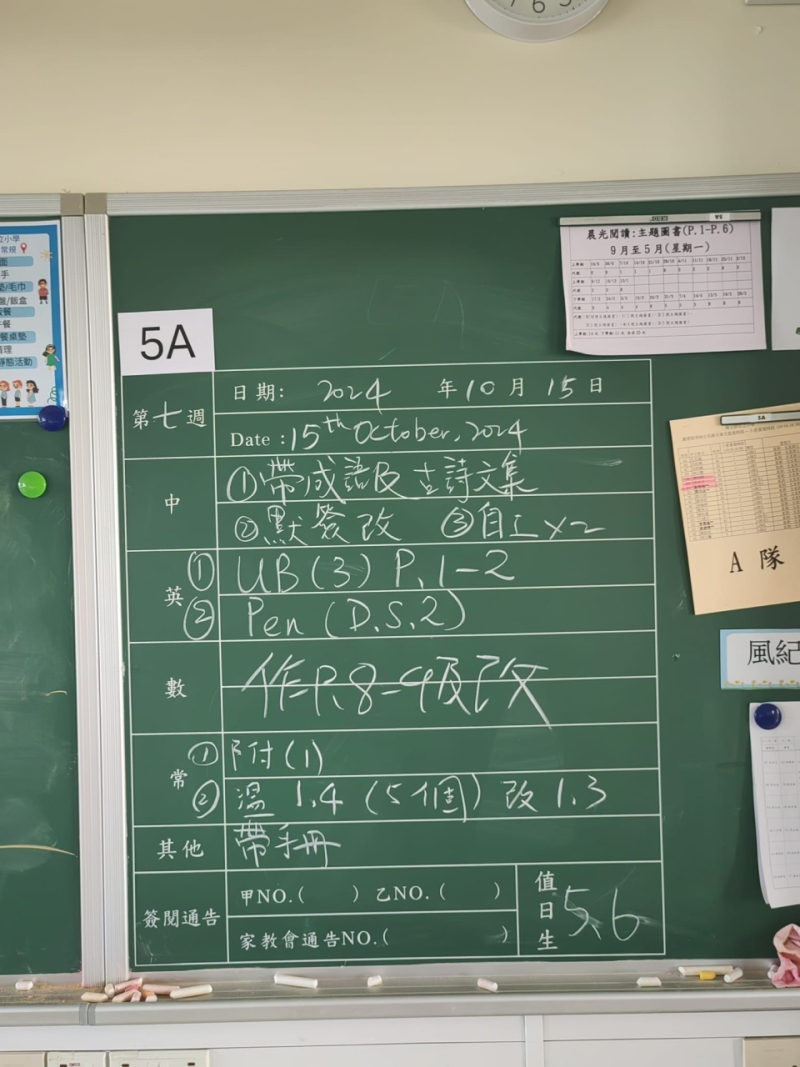 立小學
常規
面
手
墊/毛巾
盤/飯盒
飯餐
午餐
餐桌墊
清理
靜態活動
晨光閱讀:主題圖書(P.1-P.6)
9月至5月(星期一)
5A
第七週
日期: 2024 年10月15日
Date :15th October, 2024
中
①帶成語及古詩文集
②默簽改 ③自工x2
英
① UB(3) P.1-2
② Pen (D.S.2)
數
作P.8-9及改
常
① 附(1)
② 溫 1.4 (5個) 改 1.3
其他
帶手冊
簽閱通告
甲NO.( ) 乙NO.( )
家教會通告NO.( )
值日生
5、6
5A
A 隊
風紀